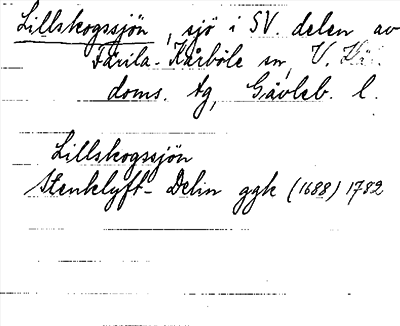 Lillskogssjön, sjö i SV. delen av
Färila-Kårböle sn, V. Häl.
doms. tg, Gävleb. l.
Lillskogssjön
Stenklyft-Delin ggk (1688) 1782